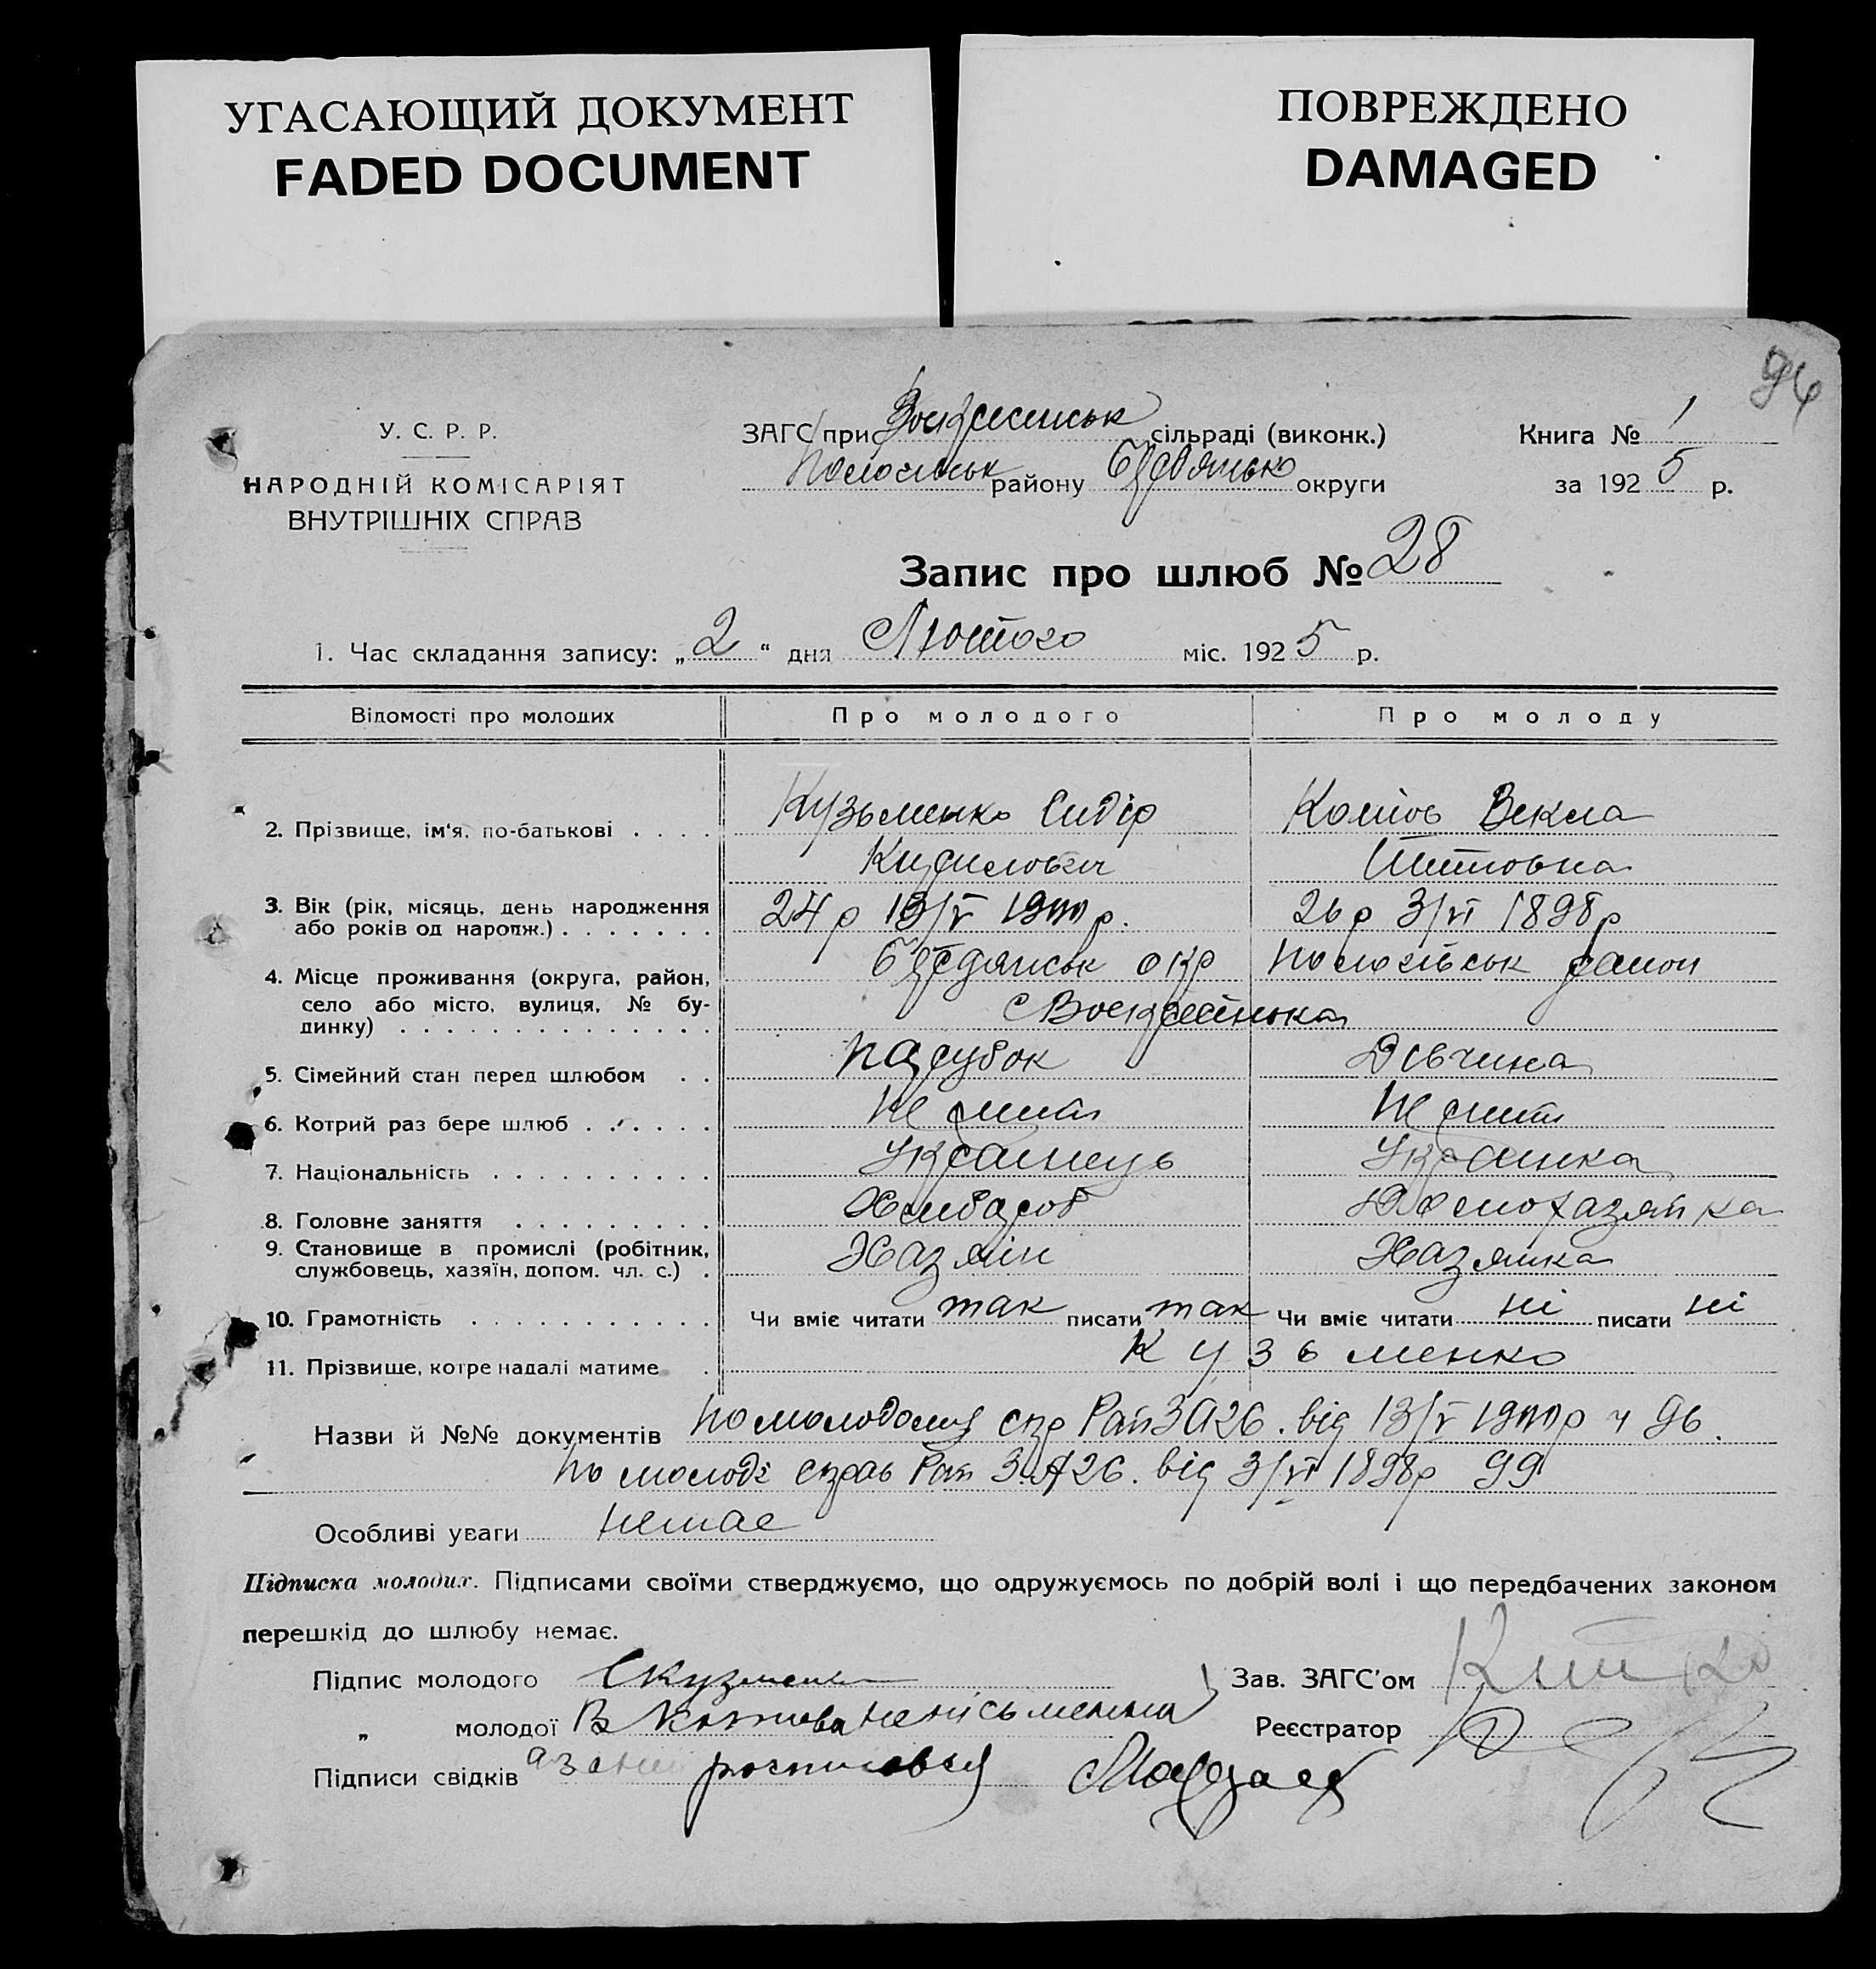 УГАСАЮЩИЙ ДОКУМЕНТ
FADED DOCUMENT
ПОВРЕЖДЕНО
DAMAGED
94
У. С. Р. Р.
НАРОДНІЙ КОМІСАРІЯТ
ВНУТРІШНІХ СПРАВ
ЗАГС при Воскресенськ сільраді (виконк.)
Пологівськ району Бердянсько округи
Книга № 1
за 1925 р.
Запис про шлюб № 28
1. Час складання запису: „2“ дня Лютого міс. 1925 р.
Відомості про молодих Про молодого Про молоду
2. Прізвище, ім'я, по-батькові . . . . Кузьменко Сидір Котов Векла
Кирилович Титовна
3. Вік (рік, місяць, день народження
або років од народж.) . . . . . . . 24 р 13/V 1900 р. 26 р 3/VI 1898 р
4. Місце проживання (округа, район,
село або місто, вулиця, № бу-
динку) . . . . . . . . . . . . . .
Бердянськ окр Пологівськ район
с Воскресенька
5. Сімейний стан перед шлюбом . . Парубок Дівчина
6. Котрий раз бере шлюб . . . . . .
7. Національність . . . . . . . . . . Українець Українка
8. Головне заняття . . . . . . . . . Хлібороб Домохазяйка
9. Становище в промислі (робітник,
службовець, хазяїн, допом. чл. с.) . Хазяїн Хазяйка
10. Грамотність . . . . . . . . . . . Чи вміє читати так писати так Чи вміє читати ні писати ні
11. Прізвище, котре надалі матиме . Кузьменко
Назви й №№ документів по молодому спр Рай ЗАГС. від 13/V 1900 р ч 96.
по молоді справ Рай ЗАГС. від 3/VI 1898 р 99
Особливі уваги немає
Підписка молодих. Підписами своїми стверджуємо, що одружуємось по добрій волі і що передбачених законом
перешкід до шлюбу немає.
Підпис молодого Скузменко Зав. ЗАГС'ом
„ молодої В Котова неписьменна Реєстратор
Підписи свідків а за неї росписався